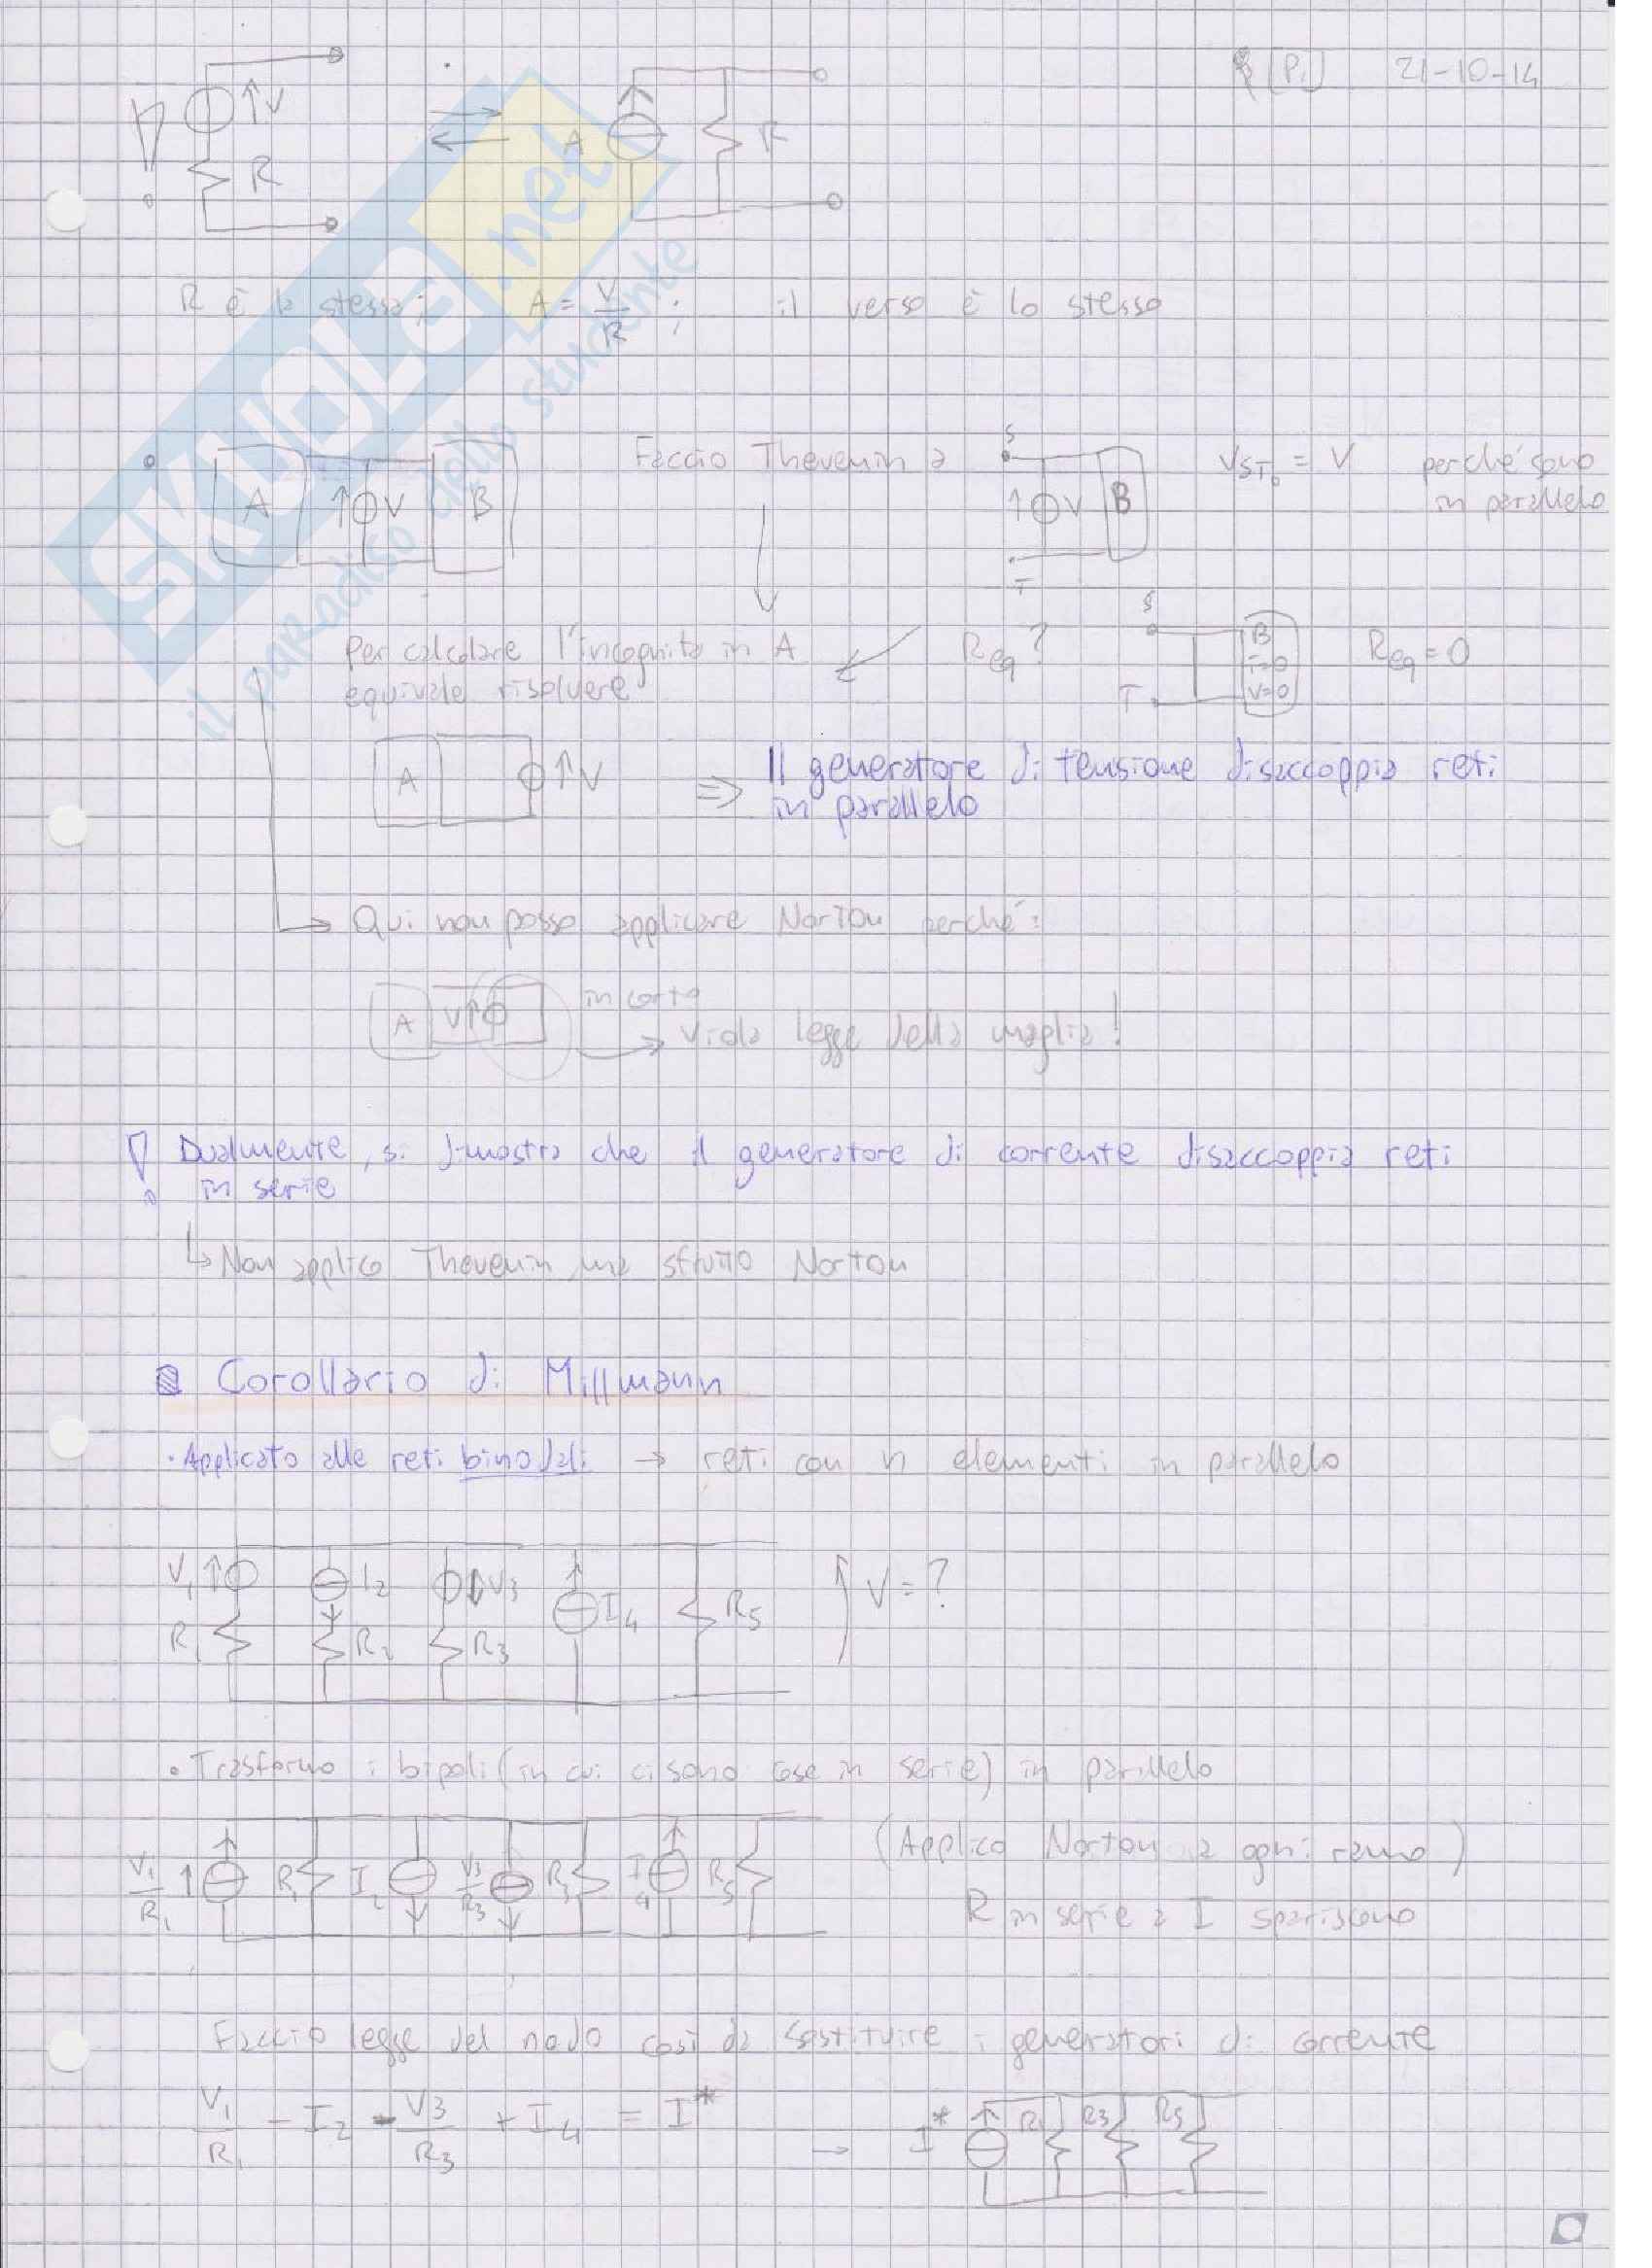 [P.] 21-10-14
V
R
A
R
R è la stessa; A = V/R ; il verso è lo stesso
SKUOLA.net
il paradiso dello studente
A V B
Faccio Thevenin a
S
V B
T
VST0 = V perché sono
in parallelo
Per calcolare l'incognita in A
equivale risolvere
Req?
S
T
B
I=0
V=0
Req = 0
A V
⇒ Il generatore di tensione disaccoppia reti
in parallelo
Qui non posso applicare Norton perché:
A V
in corto
→ Viola legge della maglia!
Dualmente, si dimostra che il generatore di corrente disaccoppia reti
in serie
↳ Non applico Thevenin ma sfrutto Norton
Corollario di Millmann
· Applicato alle reti binodali → reti con n elementi in parallelo
V1 I2 V3 I4 R5 V = ?
R1 R2 R3
• Trasformo i bipoli (in cui ci sono cose in serie) in parallelo
V1/R1 R1 I2 V3/R3 R3 I4 R5
(Applico Norton a ogni ramo)
R in serie a I spariscono
Faccio legge del nodo così da sostituire i generatori di corrente
V1/R1 - I2 - V3/R3 + I4 = I* → I* R1 R3 R5